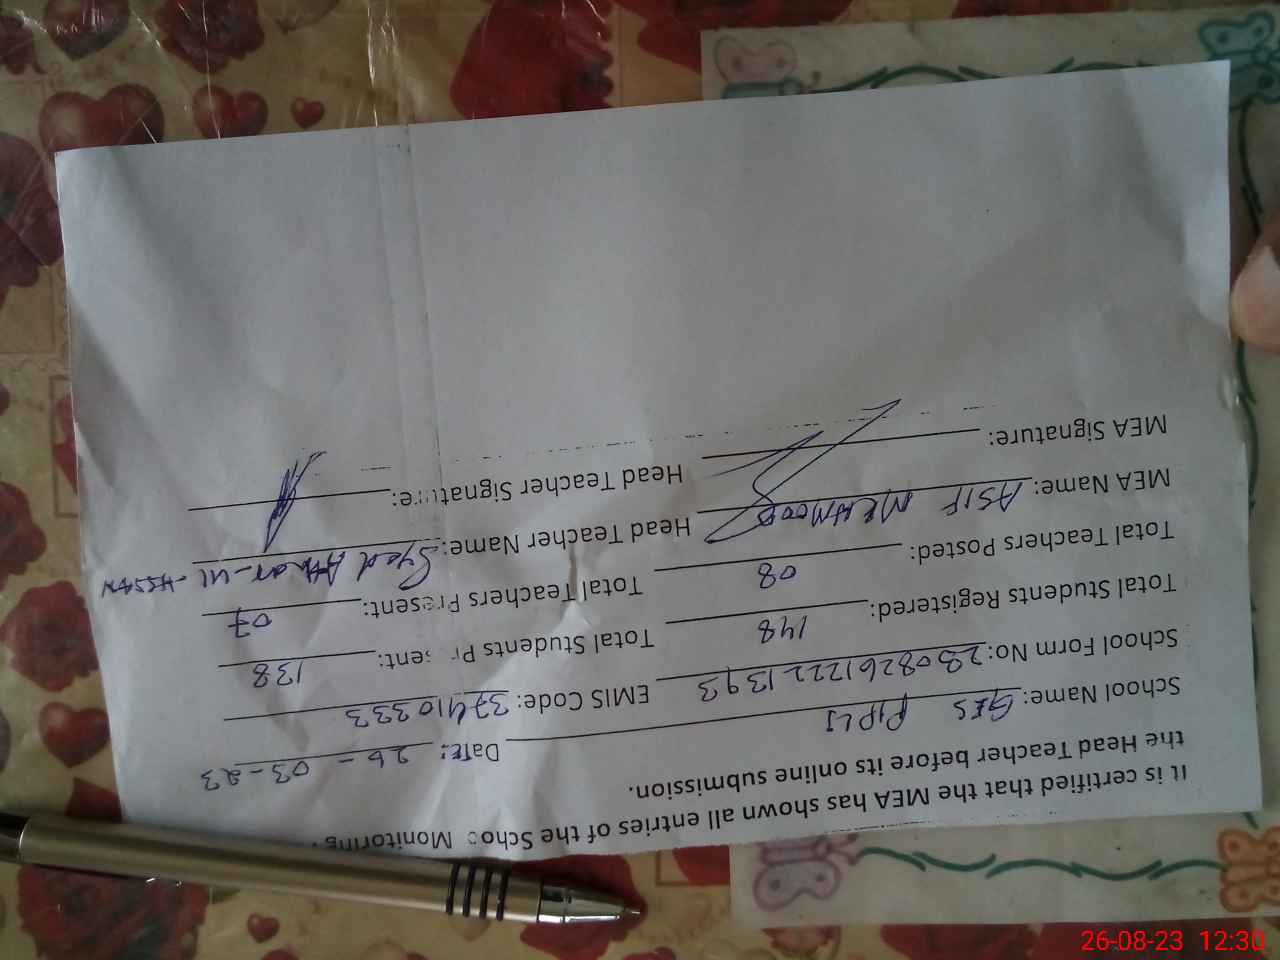 It is certified that the MEA has shown all entries of the Schoo Monitoring
the Head Teacher before its online submission.
Date: 26-03-23
School Name: GES PIPLI
School Form No: 28082612221393 EMIS Code: 37410333
Total Students Registered: 148 Total Students Pr sent: 138
Total Teachers Posted: 08 Total Teachers Present: 07
MEA Name: ASIF MEHMOOD Head Teacher Name: Syed
MEA Signature: Head Teacher Signature:
26-08-23 12:30